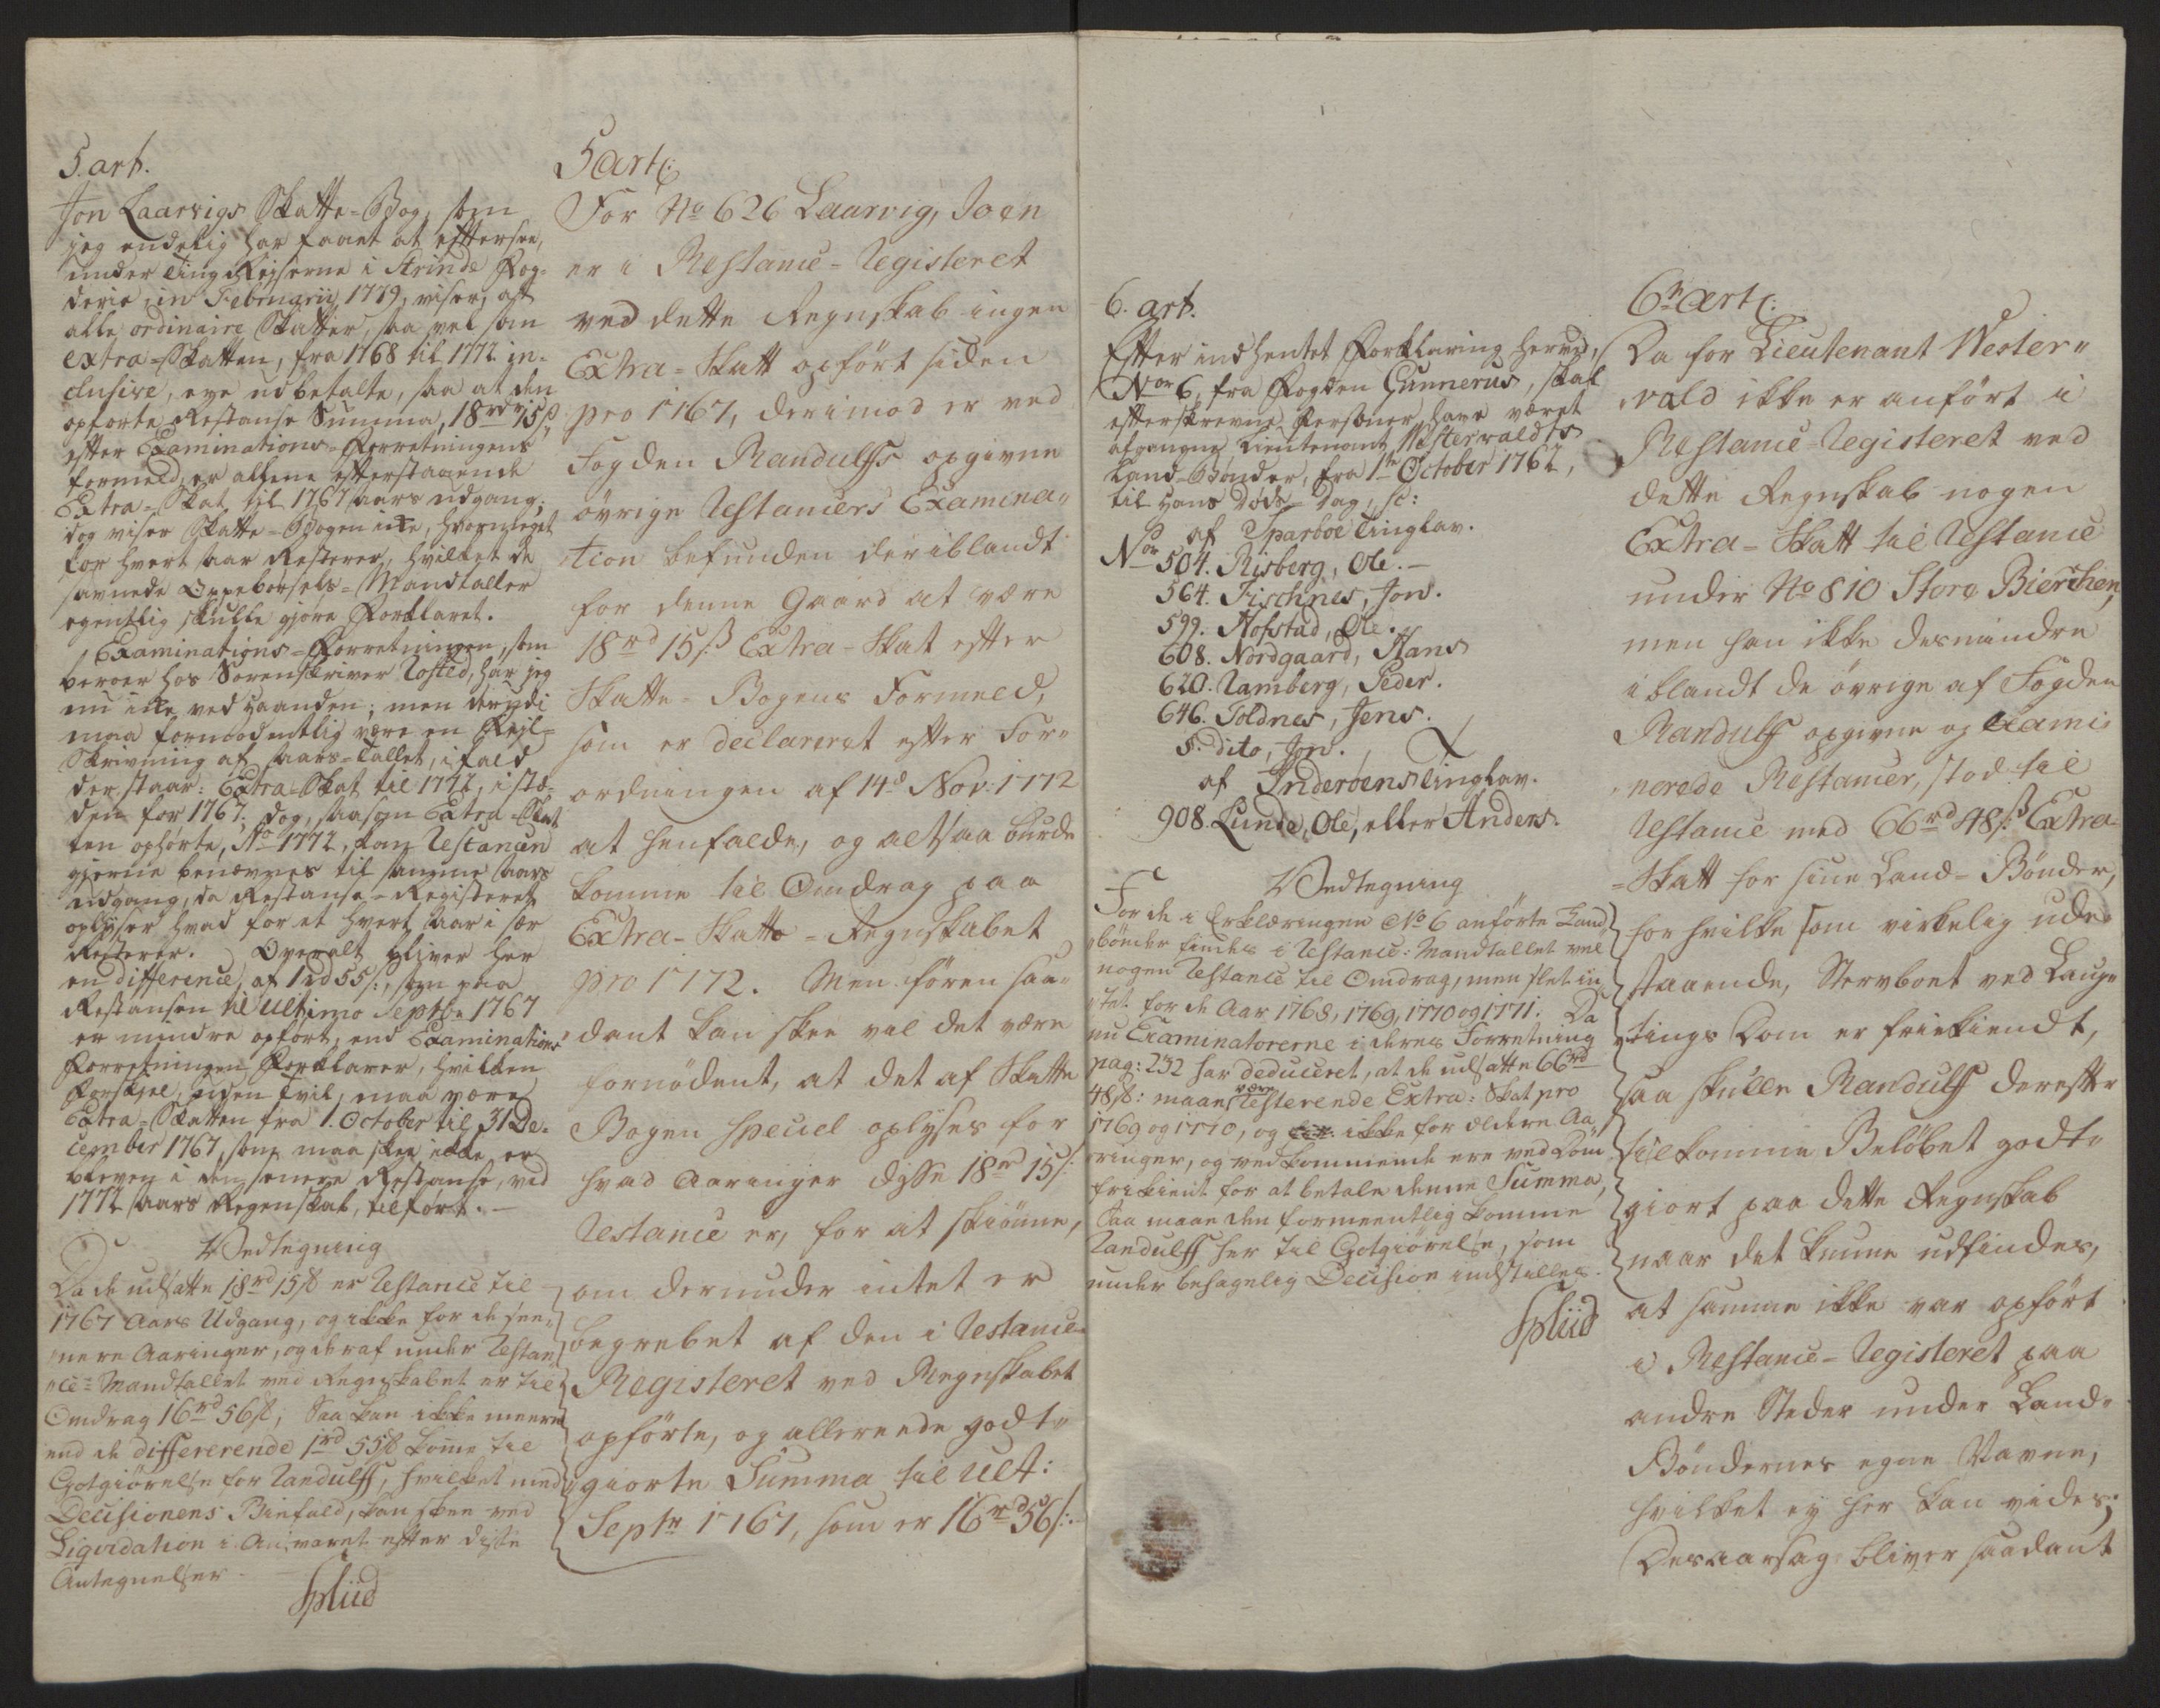 5. art.
Jon Laarvigs Skatte-Bog, som
jeg endelig har faaet at eftersee,
under Ting Rejserne i Strinde Fog-
derie, in Februarii 1779, viser, at
alle ordinaire Skatter, saa vel som
extra-Skatten, fra 1768 til 1772 in-
clusive, ere udbetalte, saa at den
opførte Restanse Summa, 18rd 15s
efter Examinations-Forretningens
formeld, er allene efterstaaende
Extra-Skat til 1767 aars udgang;
dog viser Skatte-Bogen icke, hvor meget
for hvert aar Resterer, hvilket de
savnede Oppebørsels-Mandtaller
egentlig skulle gjøre Forklaret.
Examinations-Forretningen, som
beroer hos Sorenskriver Rosted, har jeg
nu icke ved Haanden; men derudi
maa formodentlig være en Fejl-
Skrivning af aars-Tallet, ifald
der staar: Extra-Skat til 1772, i stæ-
den for 1767; dog, saasom Extra-Skat-
ten ophørte, Ao 1772, kan Restancen
gjerne benævnes til samme aars
udgang, da Restanse-Registeret
oplyser hvad for et hvert aar i sær
Resterer. Overalt bliver her
en difference, af 1rd 55s:, som paa
Restansen til Ultimo Septbr 1767
er mindre opført, end Examinations
Forretningen Forklarer, hvilken
Forskjel, uden tvil, maa være
Extra-Skatten fra 1. October til 31 De-
cember 1767, som maa skee icke er
bleven i den senere Restanse, ved
1772 aars Regenskab, tilført.
Vedtegning
Da de udsatte 18rd 15s er Restance til
1767 Aars Udgang, og ikke for de see-
nere Aaringer, og deraf under Restan
ce-Mandtallet ved Regnskabet er til
Omdrag 16rd 56s, Saa kan ikke meere
end de differerende 1rd 55s komme til
Gotgiørelse for Randulff, hvilket med
Decisionens Biefald, kan skee ved
Liqvidation i Ansvaret efter disse
Antegnelser.
Spliid
5 Art:
For No 626 Laarvig, Joen
er i Restance-Registeret
ved dette Regnskab ingen
Extra-Skatt opført siden
pro 1767, derimod er ved
Fogden Randulffs opgivne
øvrige Restancers Examina-
tion befunden deriblandt
for denne Gaard at være
18rd 15s Extra-Skat efter
Skatte-Bogens Formeld,
som er declareret efter For-
ordningen af 14d Nov: 1772
at henfalde, og altsaa burde
komme til Omdrag paa
Extra-Skatte-Regnskabet
pro 1772. Men føren saa-
dant kan skee vil det være
fornødent, at det af Skatte
Bogen speciel oplyses for
hvad Aaringer disse 18rd 15s:
Restance er, for at skiønne,
om derunder intet er
begrebet af den i Restance-
Registeret ved Regnskabet
opførte, og allerede godt-
giorte Summa til Ult:
Septr 1767, som er 16rd 56s:
6. art.
Efter indhentet Forklaring herved,
Nor 6, fra Fogden Gunnerus, skal
efterskrevne Personer have været
afgangne Lieutenant Westerwaldts
Land-Bønder, fra 1te October 1762,
til Hans Døds Dag, sc:
af Sparboe Tinglav.
Nor 504. Risberg, Ole.
564. Fischnes, Jon.
599. Hofstad, Ole.
608. Nordgaard, Hans
620. Ramberg, Peder.
646. Toldnes, Jens.
S. dito, Jon.
af Inderøens Tinglav.
908. Lunde, Ole, eller Anders.
Vedtegning
For de i Erklæringen No 6 anførte Land
bønder findes i Restance-Mandtallet vel
nogen Restance til Omdrag, men slet in
tet for de Aar 1768, 1769, 1770 og 1771. Da
nu Examinatorerne i deres Forretning
pag: 232 har deduceret, at de udsatte 66rd
48s: maae være Resterende Extra-Skat pro
1769 og 1770, og ikke for ældere Aa
ringer, og vedkommende ere ved Dom
frikient for at betale denne Summa,
Saa maae den formeentlig komme
Randulff her til Gotgiørelse, som
under behagelig Decision indstilles.
Spliid
6te Art:
Da for Lieutenant Wester-
vald ikke er anført i
Restance-Registeret ved
dette Regnskab nogen
Extra-Skatt til Restance
under No 810 Store Bierchen,
men han ikke desmindre
iblandt de øvrige af Fogden
Randulff opgivne og Exami-
nerede Restancer, stod til
Restance med 66rd 48s: Extra-
Skatt for sine Land-Bønder,
for hvilke som virkelig ude-
staaende, Stervboet ved Laug-
tings Dom er friekiendt,
saa skulle Randulff derefter
tilkomme Beløbet godt-
giort paa dette Regnskab
naar det kunne udfindes,
at samme ikke var opført
i Restance-Registeret paa
andre Steder under Land-
Bøndernes egne Navne,
hvilket ey her kan vides;
Desaarsag bliver saadant